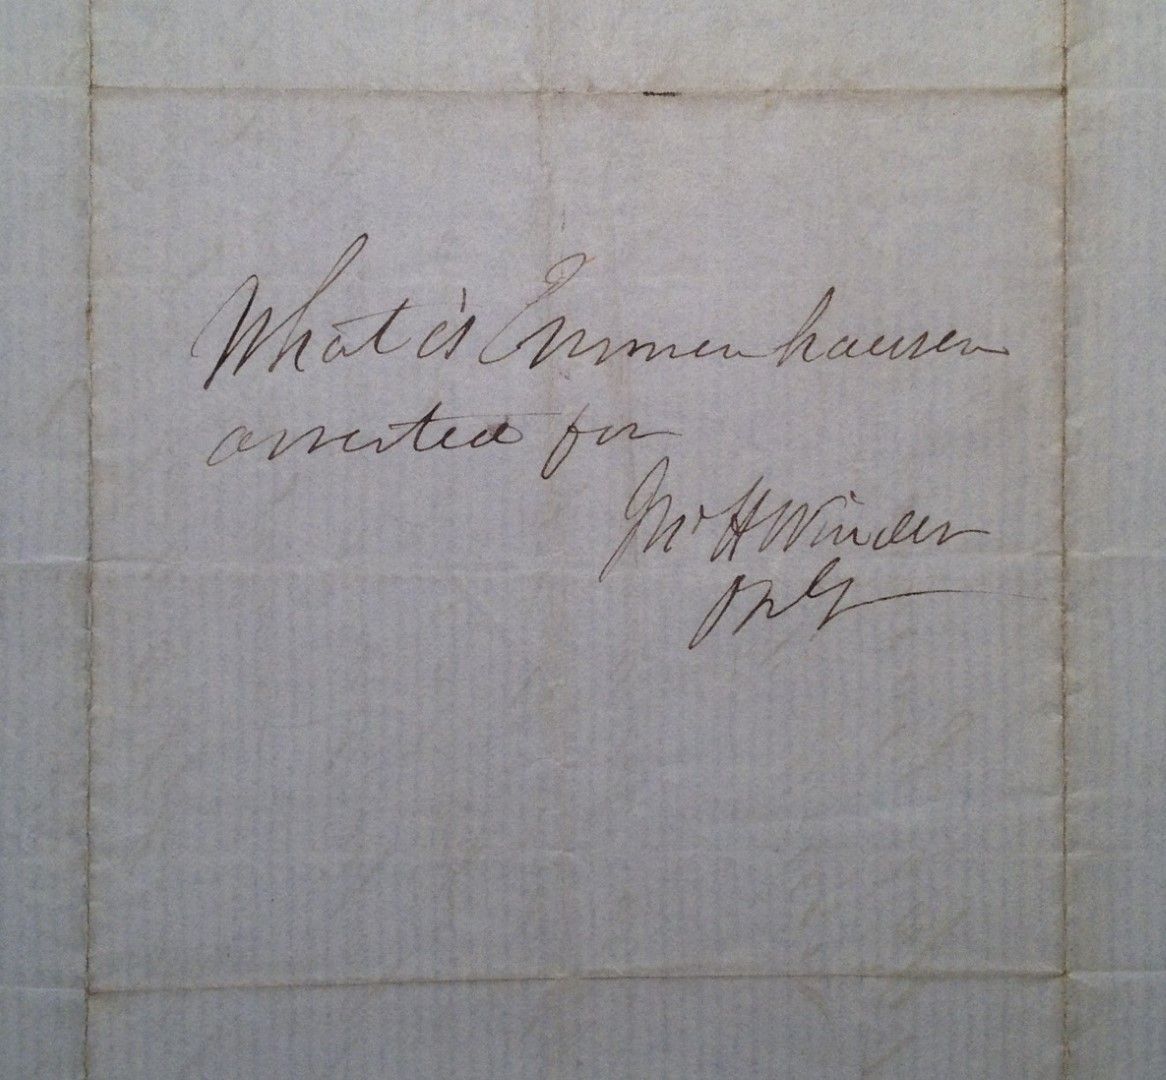 What is Emmenhausen
arrested for
Jno H Winder
B G